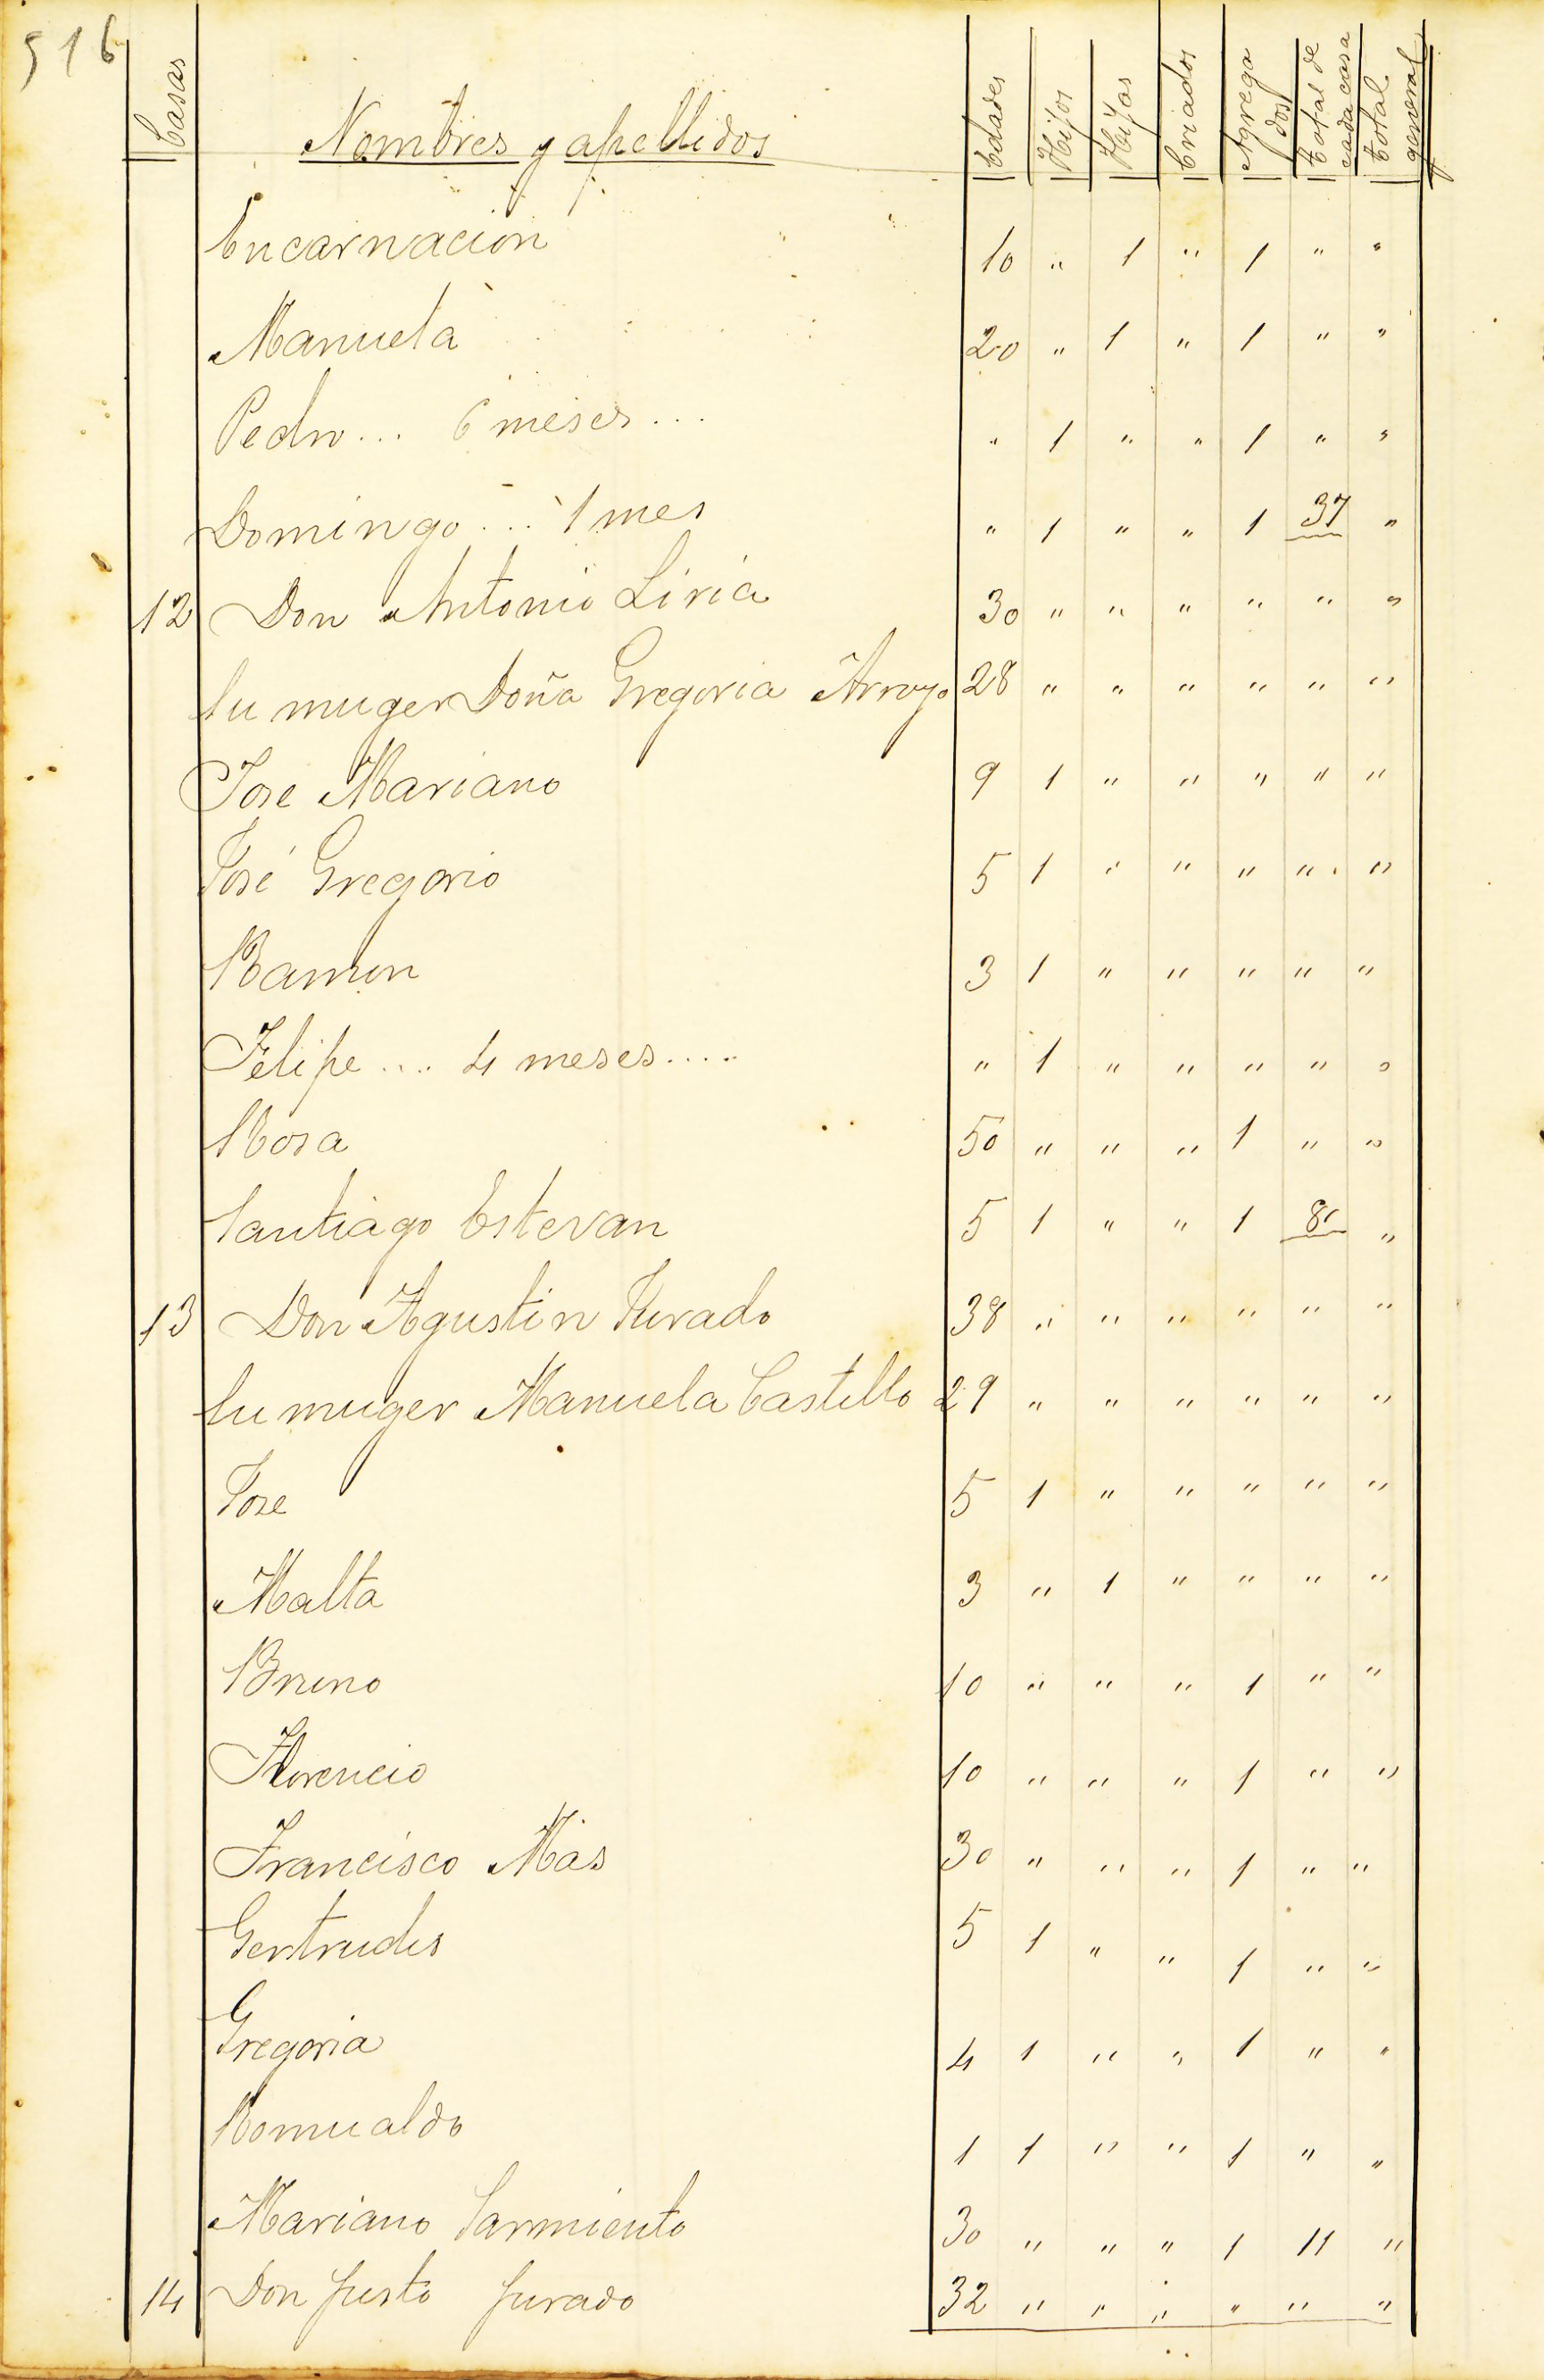 516
Casas Nombres y apellidos Edades Hijos Hijas Criados Agregados Total de cada casa Total general
Encarnacion 10 " 1 " 1 " "
Manuela 20 " 1 " 1 " "
Pedro... 6 meses... " 1 " " 1 " "
Domingo... 1 mes " 1 " " 1 37 "
12 Don Antonio Liria 30 " " " " " "
Su muger Doña Gregoria Arroyo 28 " " " " " "
Jose Mariano 9 1 " " " " "
José Gregorio 5 1 " " " " "
Ramon 3 1 " " " " "
Felipe.... 4 meses.... " 1 " " " " "
Rosa 50 " " " 1 " "
Santiago Estevan 5 1 " " 1 8 "
13 Don Agustin Jurado 38 " " " " " "
Su muger Manuela Castillo 29 " " " " " "
Jose 5 1 " " " " "
Malta 3 " 1 " " " "
Bruno 10 " " " 1 " "
Florencio 10 " " " 1 " "
Francisco Mas 30 " " " 1 " "
Gertrudis 5 1 " " 1 " "
Gregoria 4 1 " " 1 " "
Romualdo 1 1 " " 1 " "
Mariano Sarmiento 30 " " " 1 11 "
14 Don Justo Jurado 32 " " " " " "